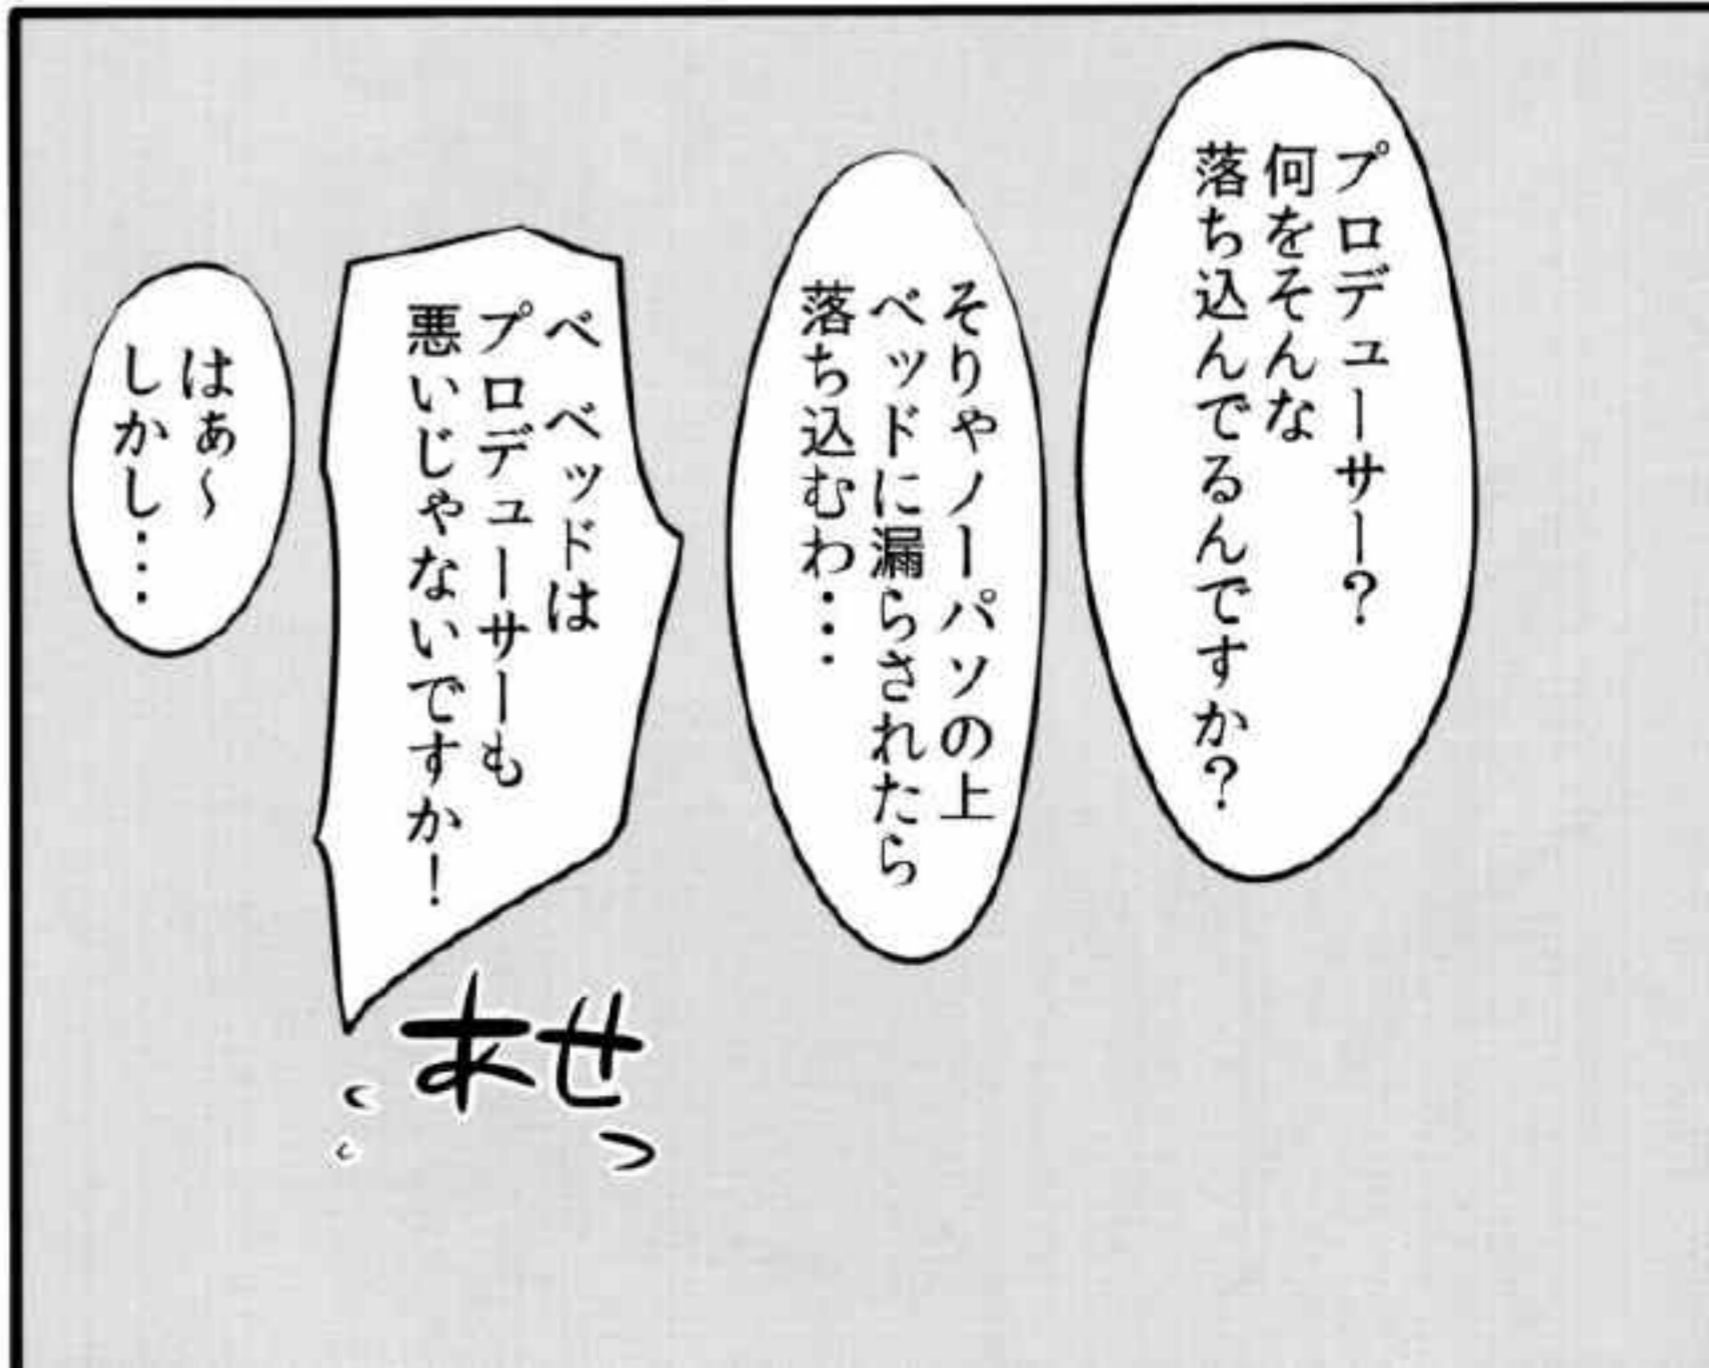 プロデューサー?
何をそんな
落ち込んでるんですか?
そりやノーパソの上
ベッドに漏らされたら
落ち込むわ・・・
ベ ベッドは
プロデューサーも
悪いじゃないですか!
はぁ~
しかし・・・
あせっ